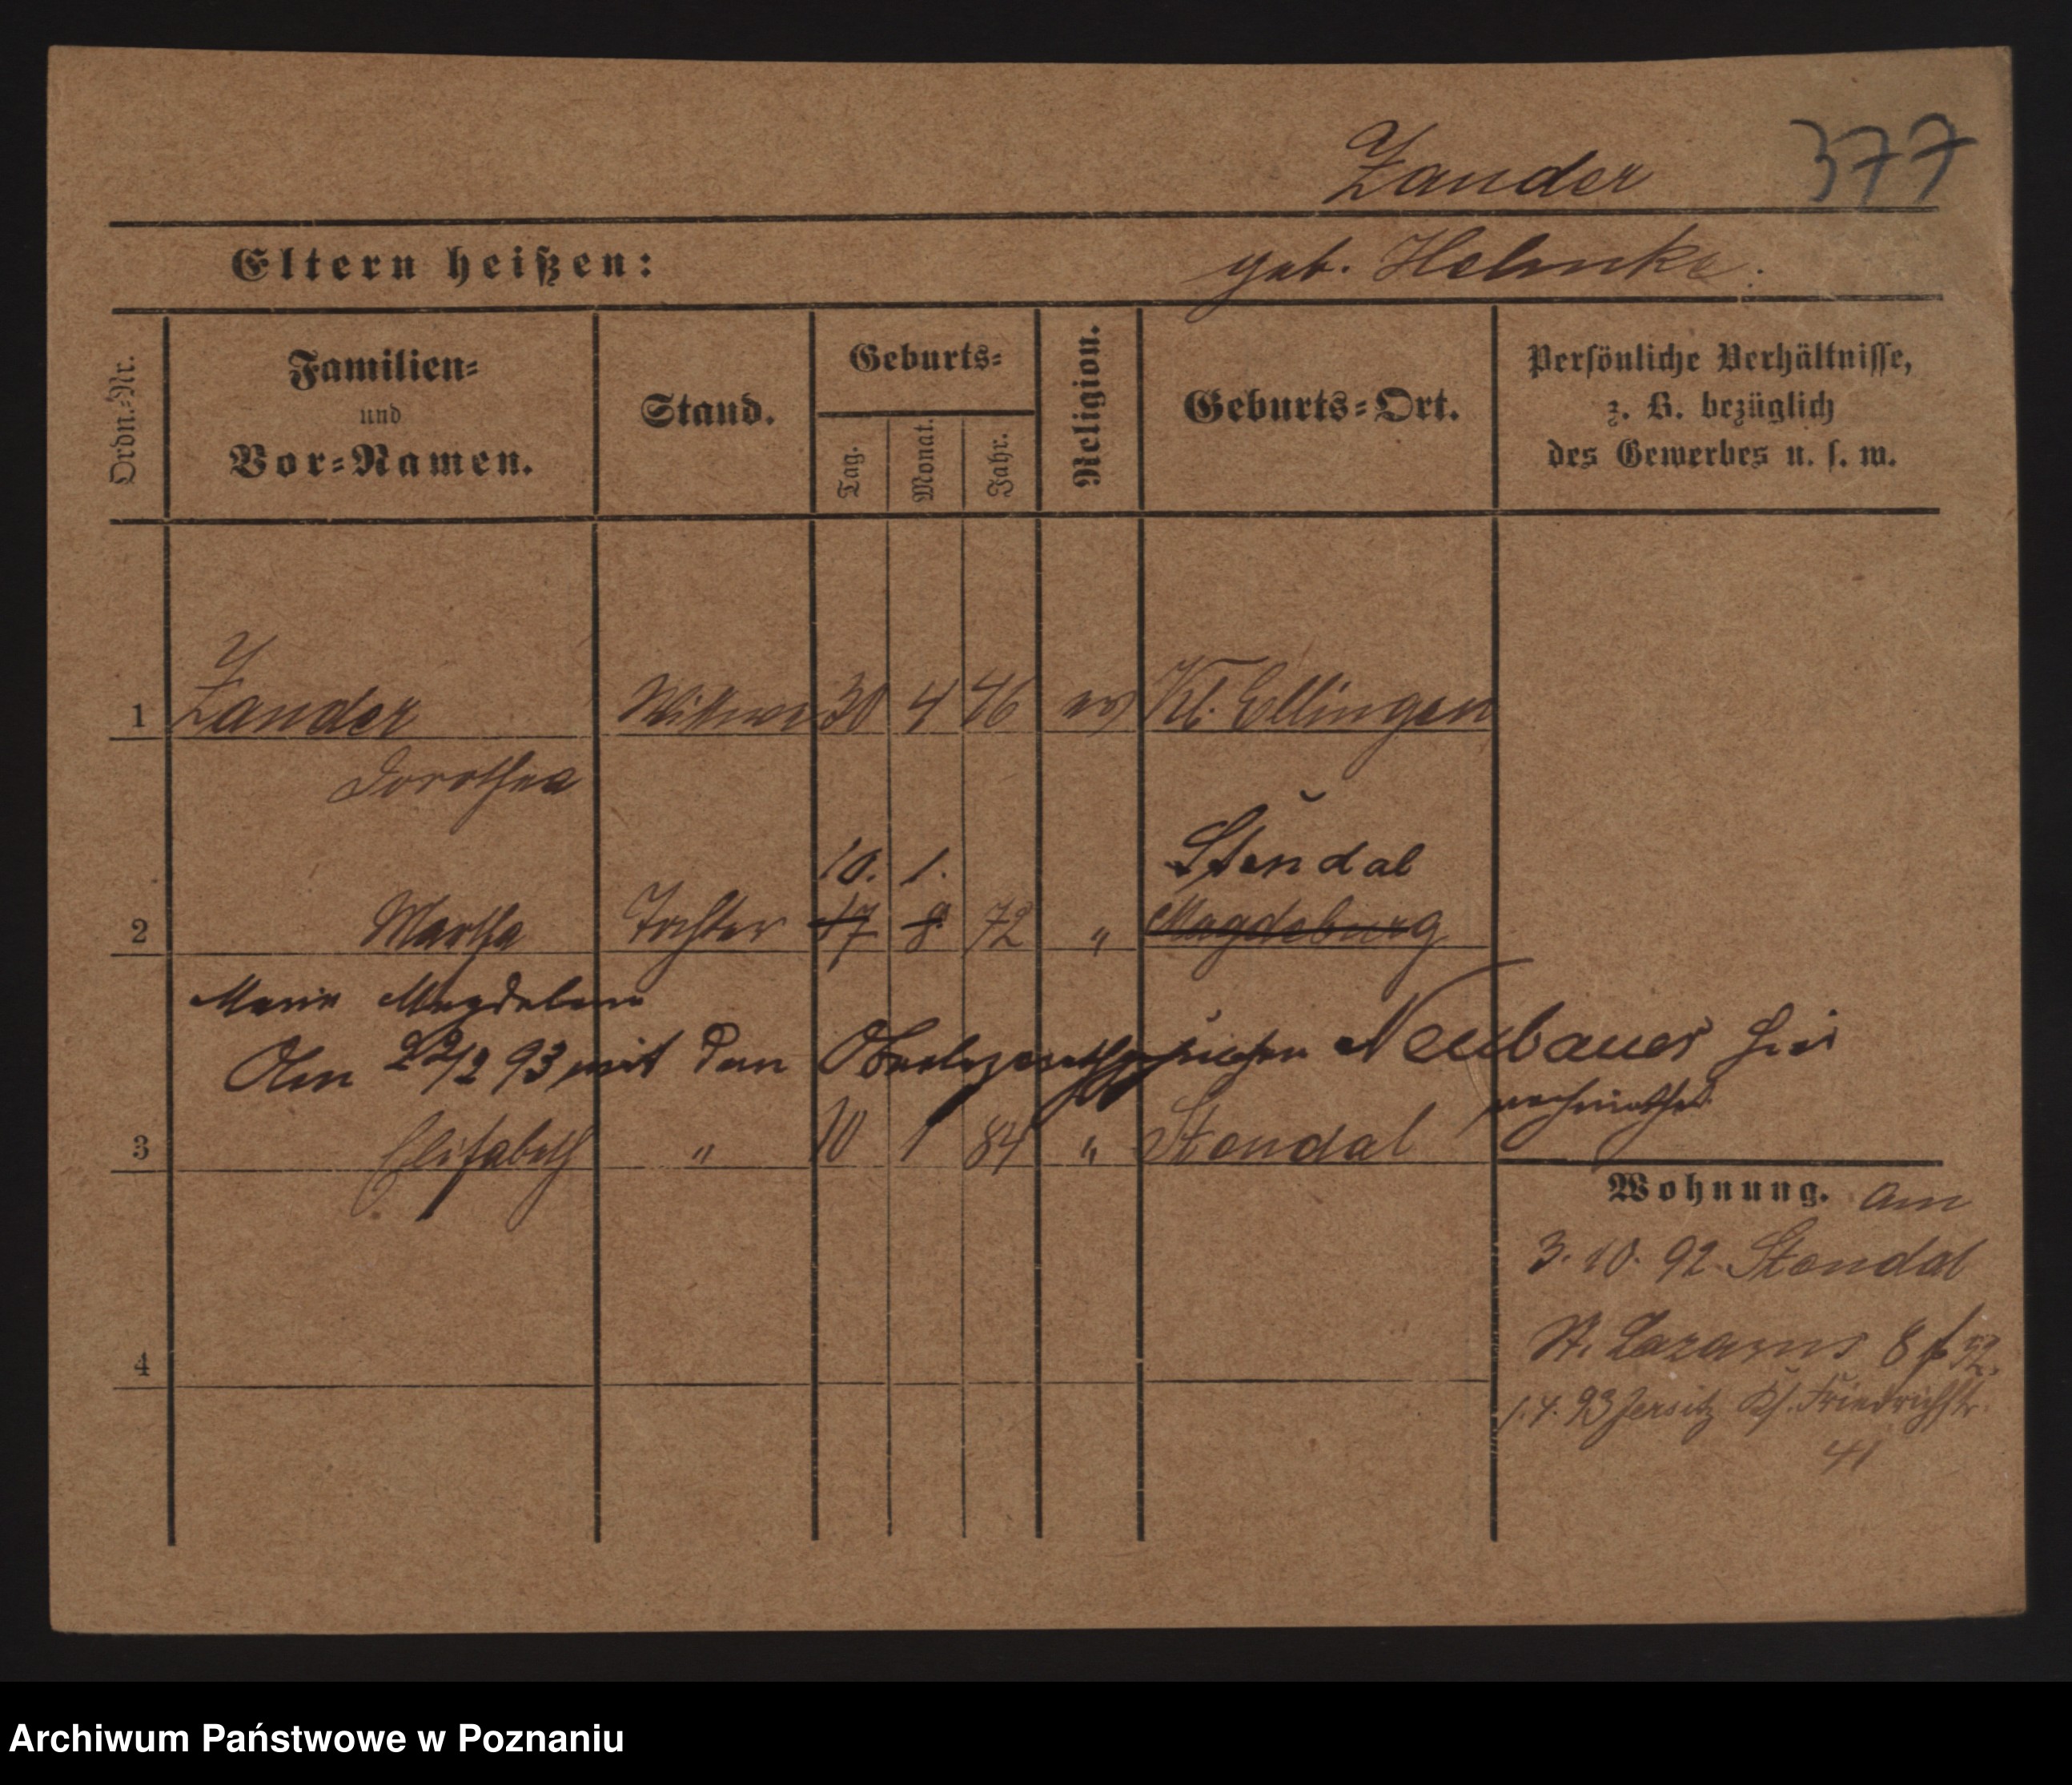 Zander 377
Eltern heißen: geb. Helmke.
Ordn.-Nr.
Familien-
und
Vor-Namen.
Stand.
Geburts-
Tag.
Monat.
Jahr.
Religion.
Geburts-Ort.
Persönliche Verhältnisse,
z. B. bezüglich
des Gewerbes u. s. w.
1 Zander Wittwe 30 4 46 ev Kl. Ellingen
Dorothea
10. 1. Stendal
2 Martha Tochter 17 8 72 " Magdeburg
Marie Magdalena
Am 22/2 93 mit dem Neubauer hier
verheirathet
3 Elisabeth " 10 1 84 " Stendal
Wohnung. Am
3. 10. 92. Stendal
St. Lazarus 8
1. 4. 93 Jersitz Friedrichstr.
41
4
Archiwum Państwowe w Poznaniu